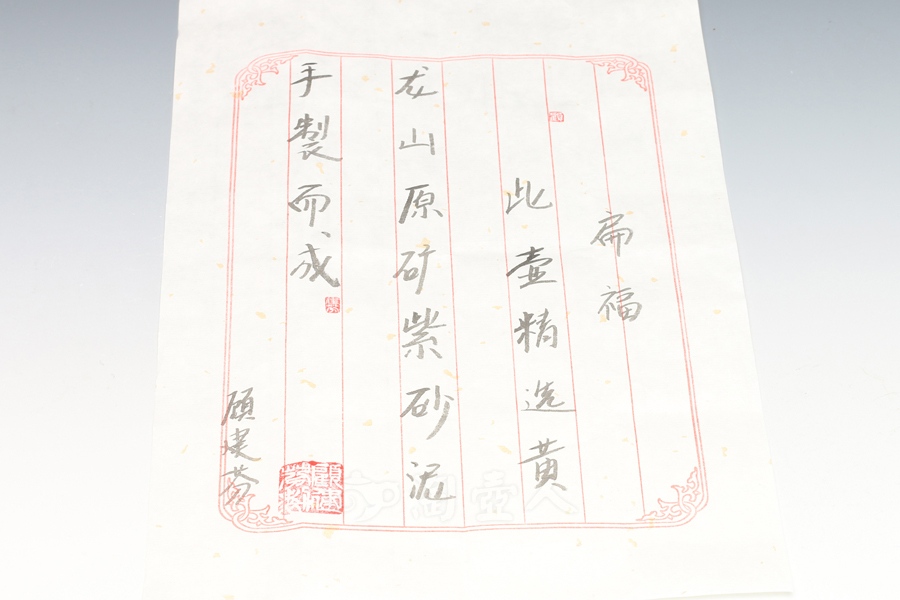 扁福
此壺精选黄
龙山原矿紫砂泥
手製而成
顾建芬